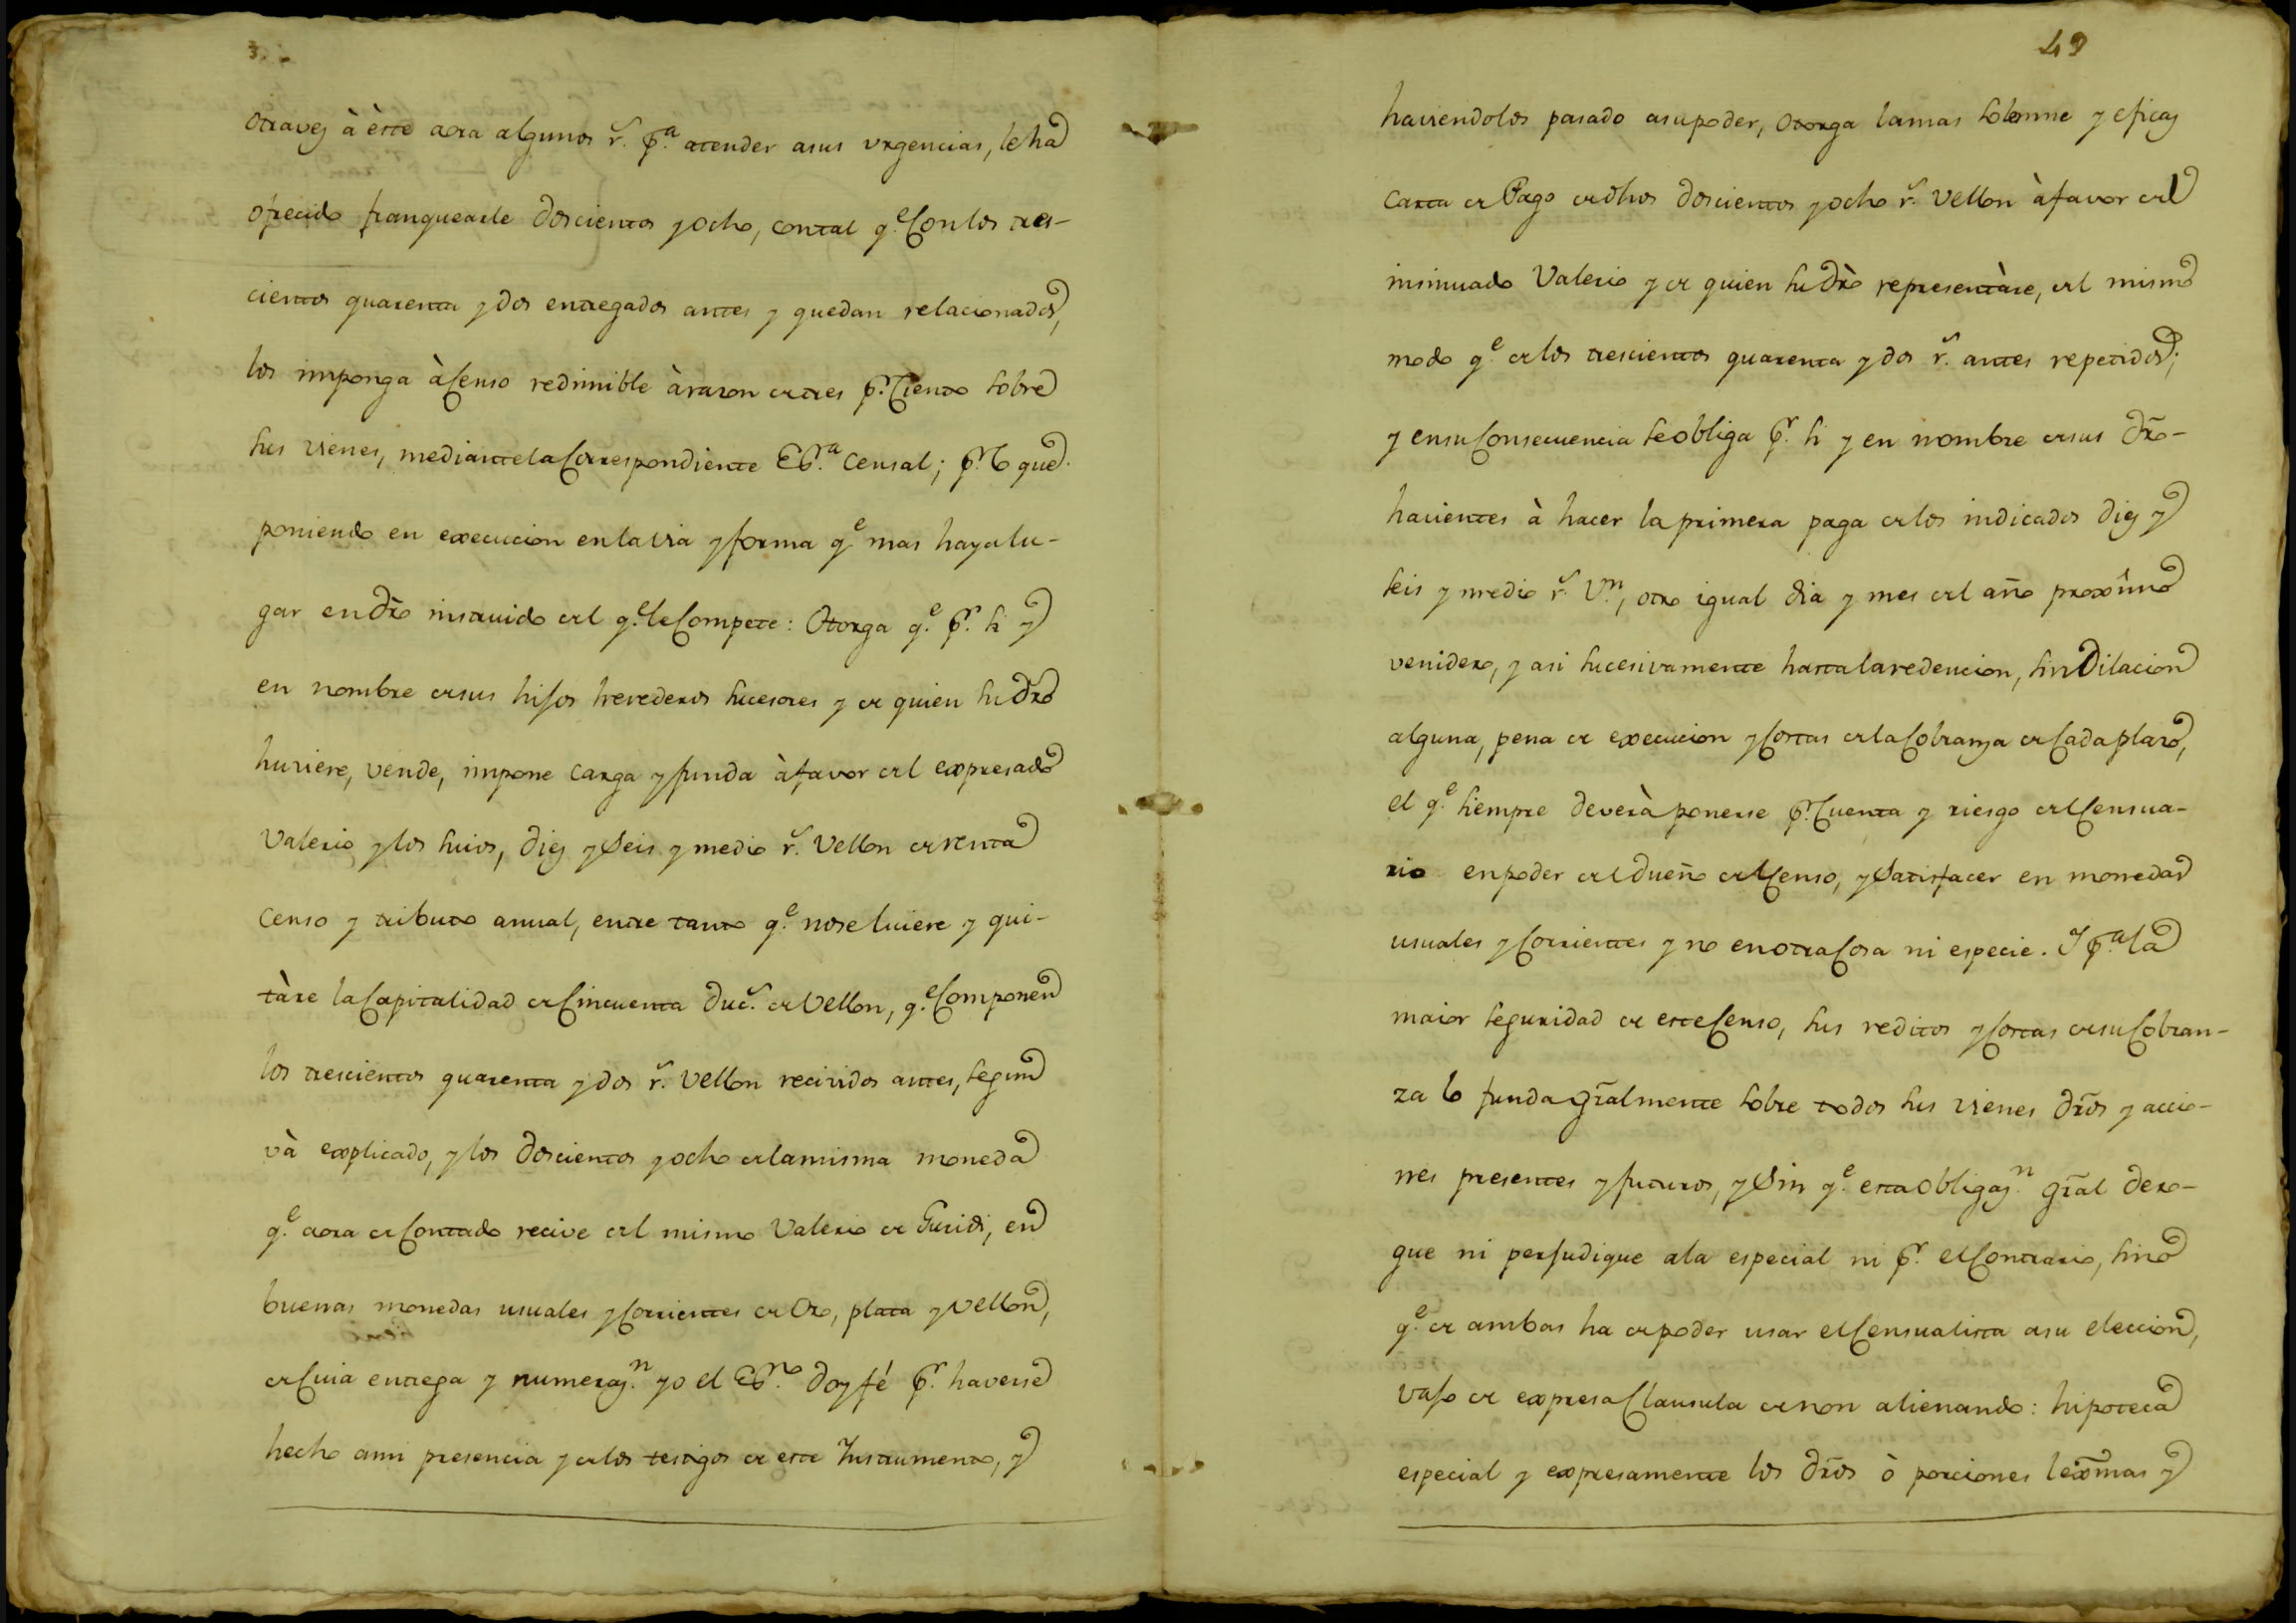 otravez à èste aora algunos r.s p.a atender asus vrgencias, leha
ofrecido franquearle doscientos y ocho, contal q.e con los tres-
cientos quarenta y dos entregados antes y quedan relacionados,
los imponga à censo redimible àrazon de tres p.r ciento sobre
sus vienes, mediante la correspondiente Es.ra censal; p.r lo que
poniendo en execucion en la via y forma q.e mas haya lu-
gar en dro instruido del q.e le compete: Otorga q.e p.r si y
en nombre de sus hijos herederos sucesores y de quien su dro
huviere, vende, impone carga y funda à favor del expresado
Valerio y los suios, diez y seis y medio r.s vellon de renta
censo y tributo anual, entre tanto q.e nose luiere y qui-
tàre la capitalidad de cincuenta duc.s de vellon, q.e componen
los trescientos quarenta y dos r.s vellon recividos antes, segun
và explicado, y los doscientos y ocho de la misma moneda
q.e aora de contado recive del mismo Valerio de Guridi, en
buenas monedas usuales y corrientes de Oro, plata y vellon,
de cuia entrega y numeraz.n yo el Es.no doy fé p.r haverse
hecho ami presencia y de los testigos de este Instrumento, y
49
haviendolos pasado asu poder, otorga la mas solemne y eficaz
carta de Pago de dhos doscientos y ocho r.s vellon à favor del
insinuado Valerio y de quien su dro representàre, del mismo
modo q.e de los trescientos quarenta y dos r.s antes repetidos;
y en su consecuencia se obliga p.r si y en nombre de sus dro-
havientes à hacer la primera paga de los indicados diez y
seis y medio r.s V.n, otro igual dia y mes del año proximo
venidero, y asi sucesivamente hasta la redencion, sin dilacion
alguna, pena de execucion y costas de la cobranza de cada plazo,
el q.e siempre deverà ponerse p.r cuenta y riesgo del censua-
rio en poder del dueño del censo, y satisfacer en monedas
usuales y corrientes y no en otra cosa ni especie. Y p.a la
maior seguridad de este censo, sus reditos y costas de su cobran-
za lo funda gr̃almente sobre todos sus vienes dr̃os y accio-
nes presentes y futuros, y sin q.e esta obligaz.n gr̃al dero-
gue ni perjudique ala especial ni p.r el contrario, sino
q.e de ambas ha de poder usar el censualista asu eleccion,
vajo de expresa clausula de non alienando: hipoteca
especial y expresamente los dr̃os ò porciones lexm̃as y